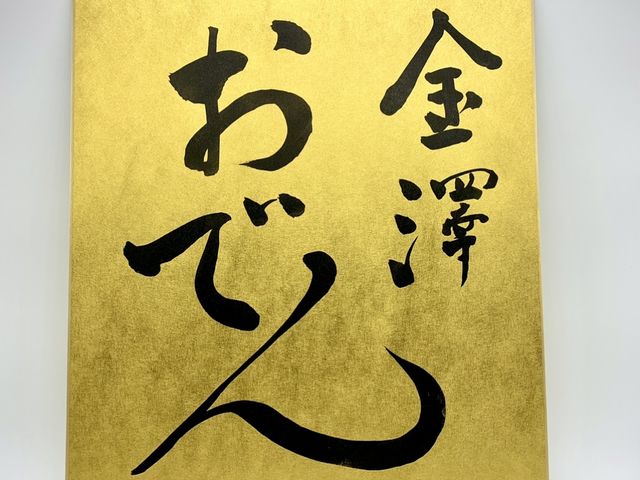 金澤
おでん